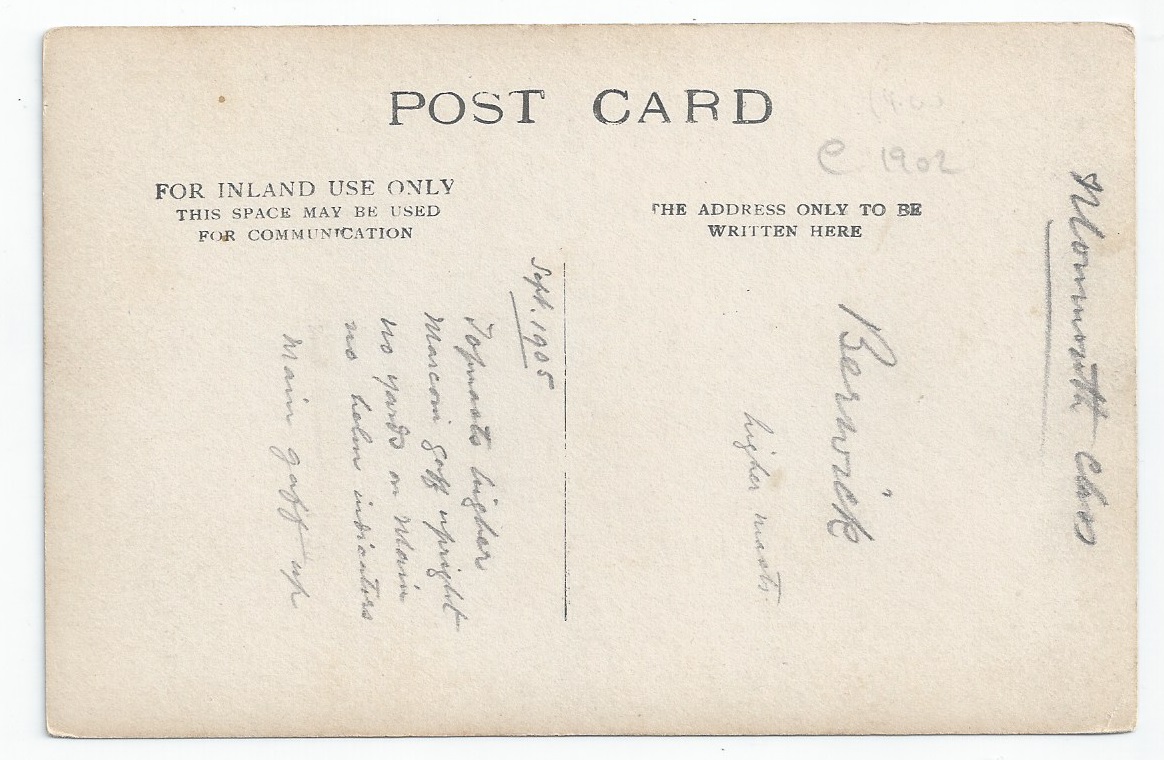 POST CARD
C 1902
FOR INLAND USE ONLY
THIS SPACE MAY BE USED
FOR COMMUNICATION
THE ADDRESS ONLY TO BE
WRITTEN HERE
Monmouth Class
Berwick
higher masts.
Sept. 1905
Topmasts higher
Marconi gaff upright
no yards on Main
no helm indicators
Main gaff up